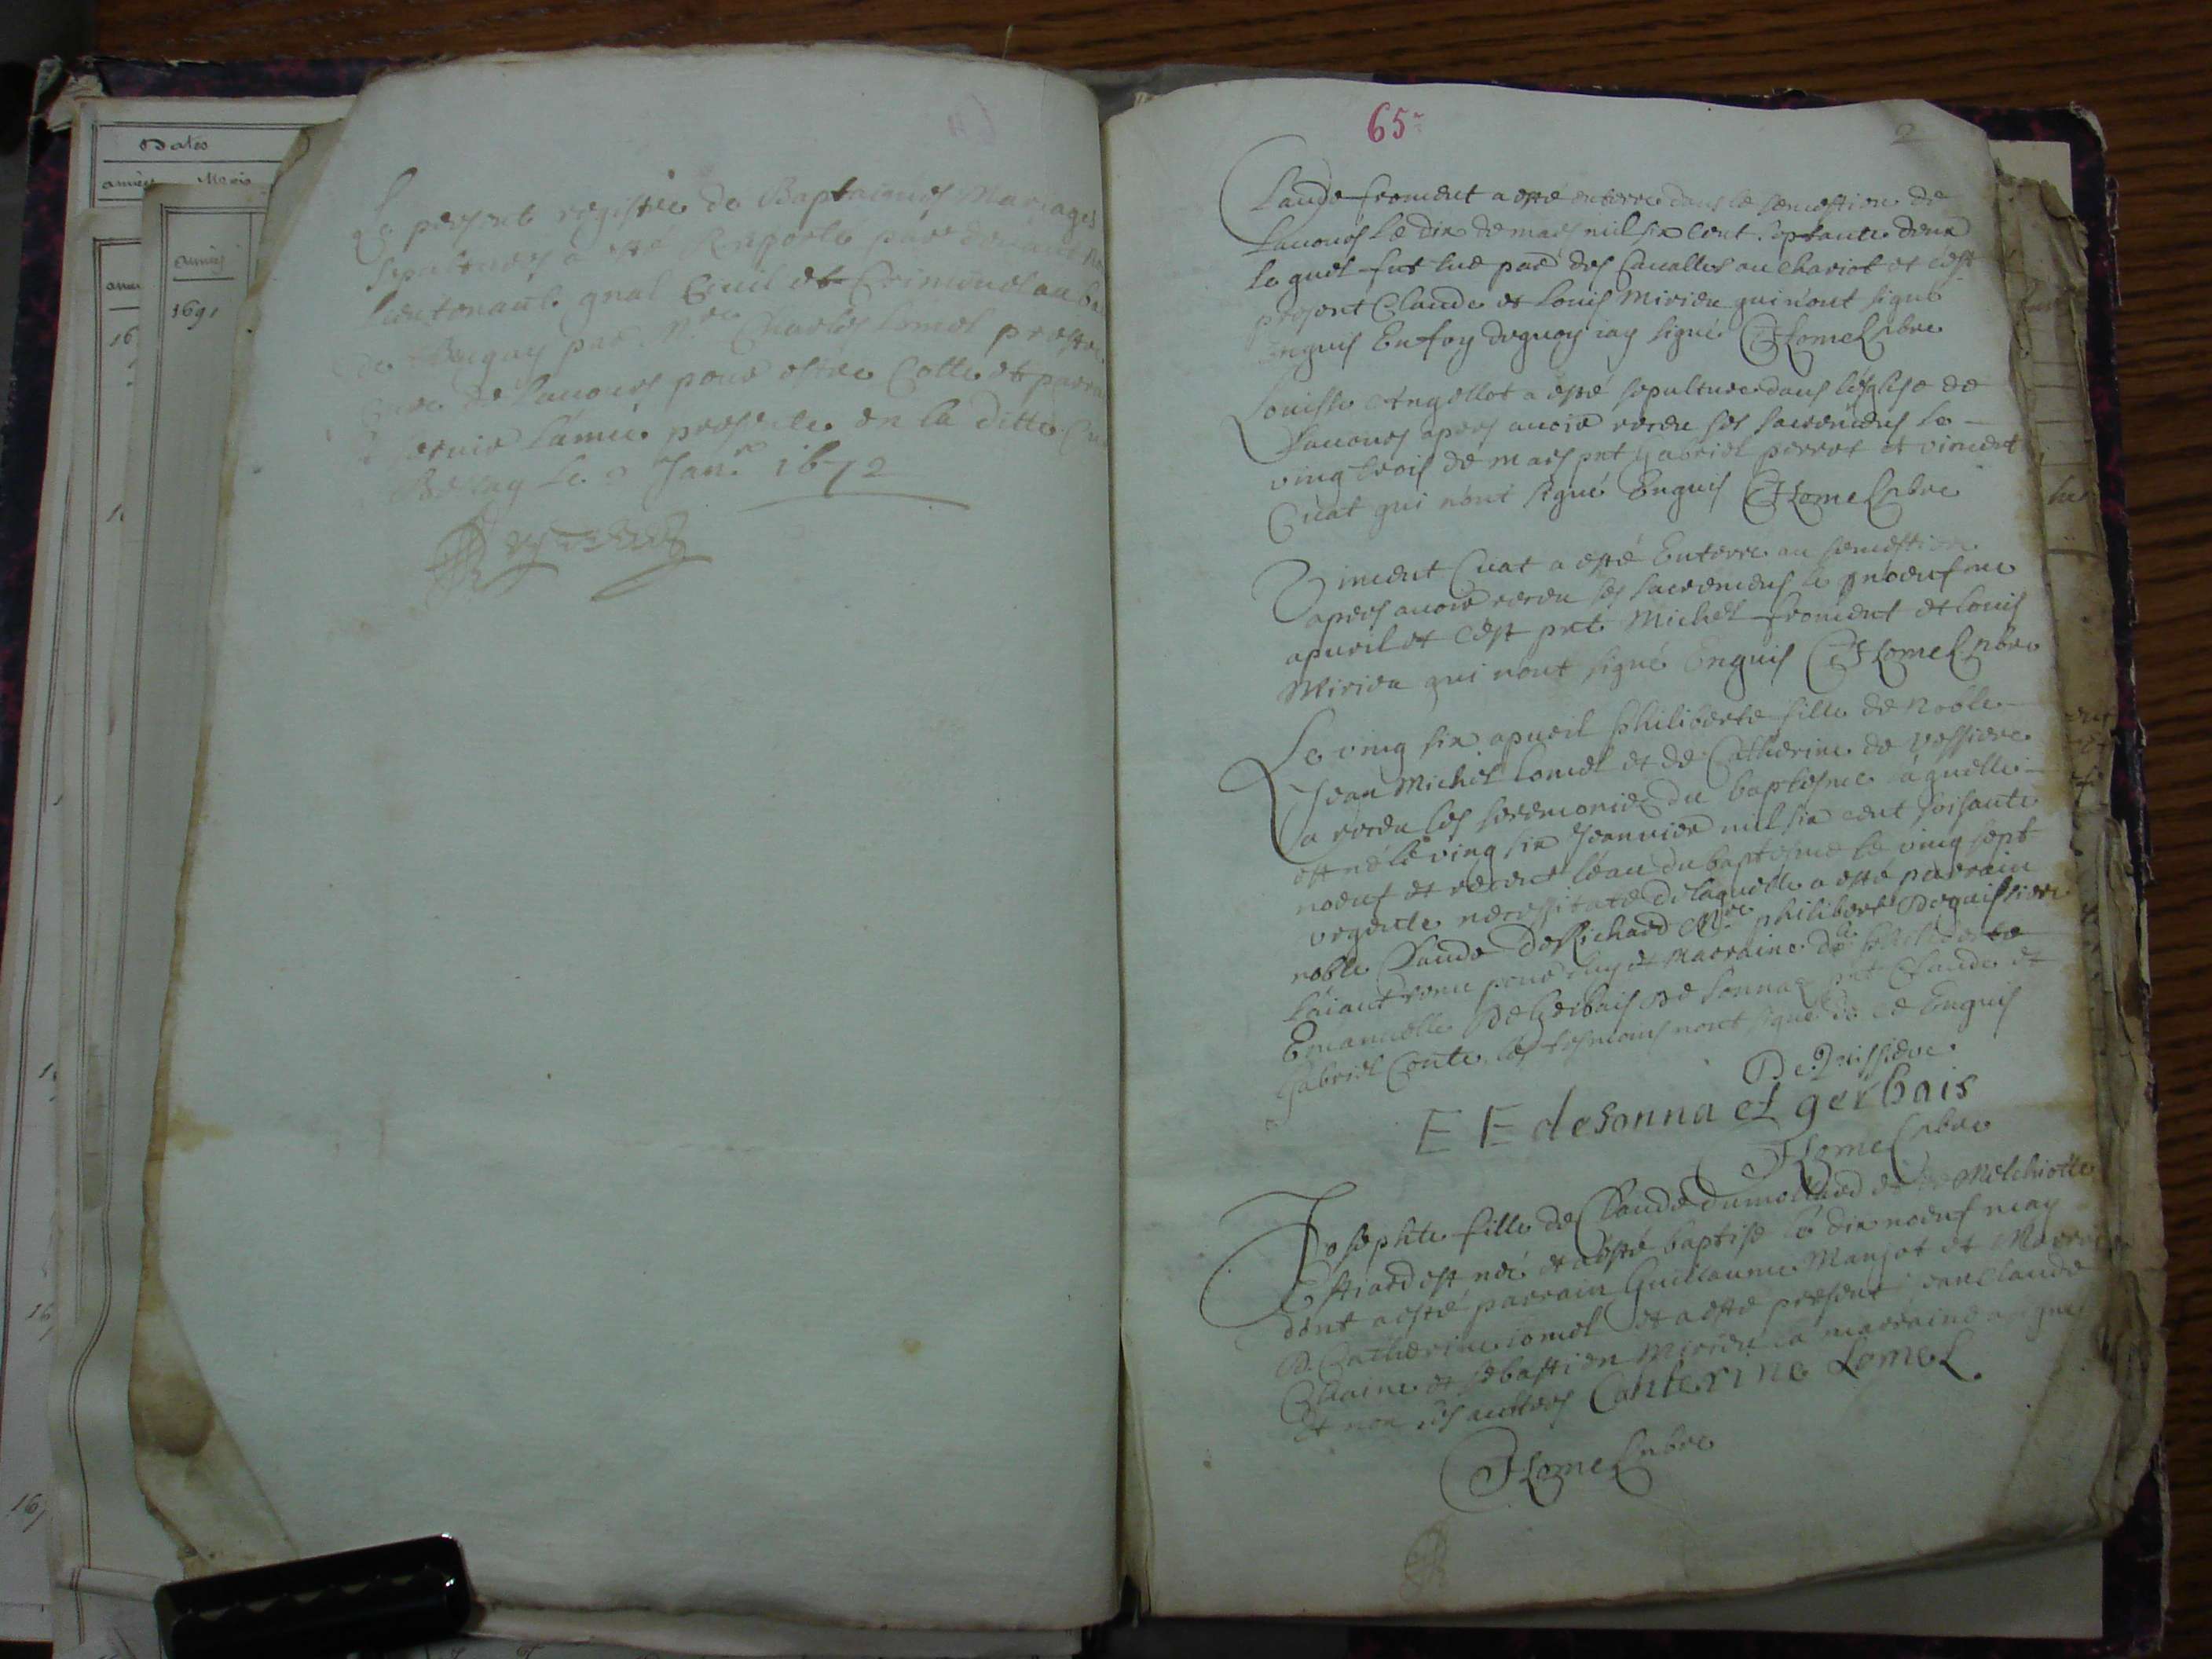 Dates
années Mois
années
1691
Le present registre de Baptaignes Mariages
Sepultures a esté Raporté par devant no
Lieutenant gnal Civil et Criminel au ba
de Beugey par Mre Charles Lomel prestre
Curé de Lavours pour estre Cotte et parra
servir lannée presente en la ditte Cu
Belay le 2 Janr 1672
65
2
Claude froment a esté enterré dans le semestiere de
Lavours Le dix de mars mil six cent septante deux
lequel fut tue par des Cavalles au chariot et cest
present Claude et Louis Mirieu qui nont signé
Enquis En foy dequoy iay signé CHLomel Curé
Louisse Angellot a esté sepulturé dans léglise de
Lavours apres avoir receu ses sacremens le
ving trois de mars pnt gabriel perret et vincent
Cuat qui nont signé Enquis CHLomel Curé
Vincent Cuat a esté Enterré au semestiere
apres avoir receu ses sacremens le neufme
apvril et cest pnt Michel froment et Louis
Mirieu qui nont signé Enquis CHLomel Curé
Le ving six apvril philiberte fille de noble
Jean Michel Lomel et de Catherine de Vessiere
a receu les seremonies du baptesme laquelle
est né le ving six Jeanvier mil six cent soisante
noeuf et receut léau du baptesme le ving sept
urgente necessitate de laquelle a esté parrain
noble Claude de Richard Mre philibert Dequissiere
laiant tenu pour luy et marraine dlle philiberte
Emanuelle De gerbais De Sonnaz pnt Claude et
gabriel Conte les tesmoins nont signé de ce Enquis
De Quissiere
E E de sonna et gerbais
CHLomel Curé
Josephte fille de Claude dumollard et de Melchiotte
Estiard est née et a esté baptisé le dix noeuf may
dont a esté parrain Guillaume Manjot et Marraine
D. Catherine Lomel et a esté present Jean Claude
et sebastien Mirieu la marraine a signé
et non les aultres Catterine Lomel
CHLomel Curé